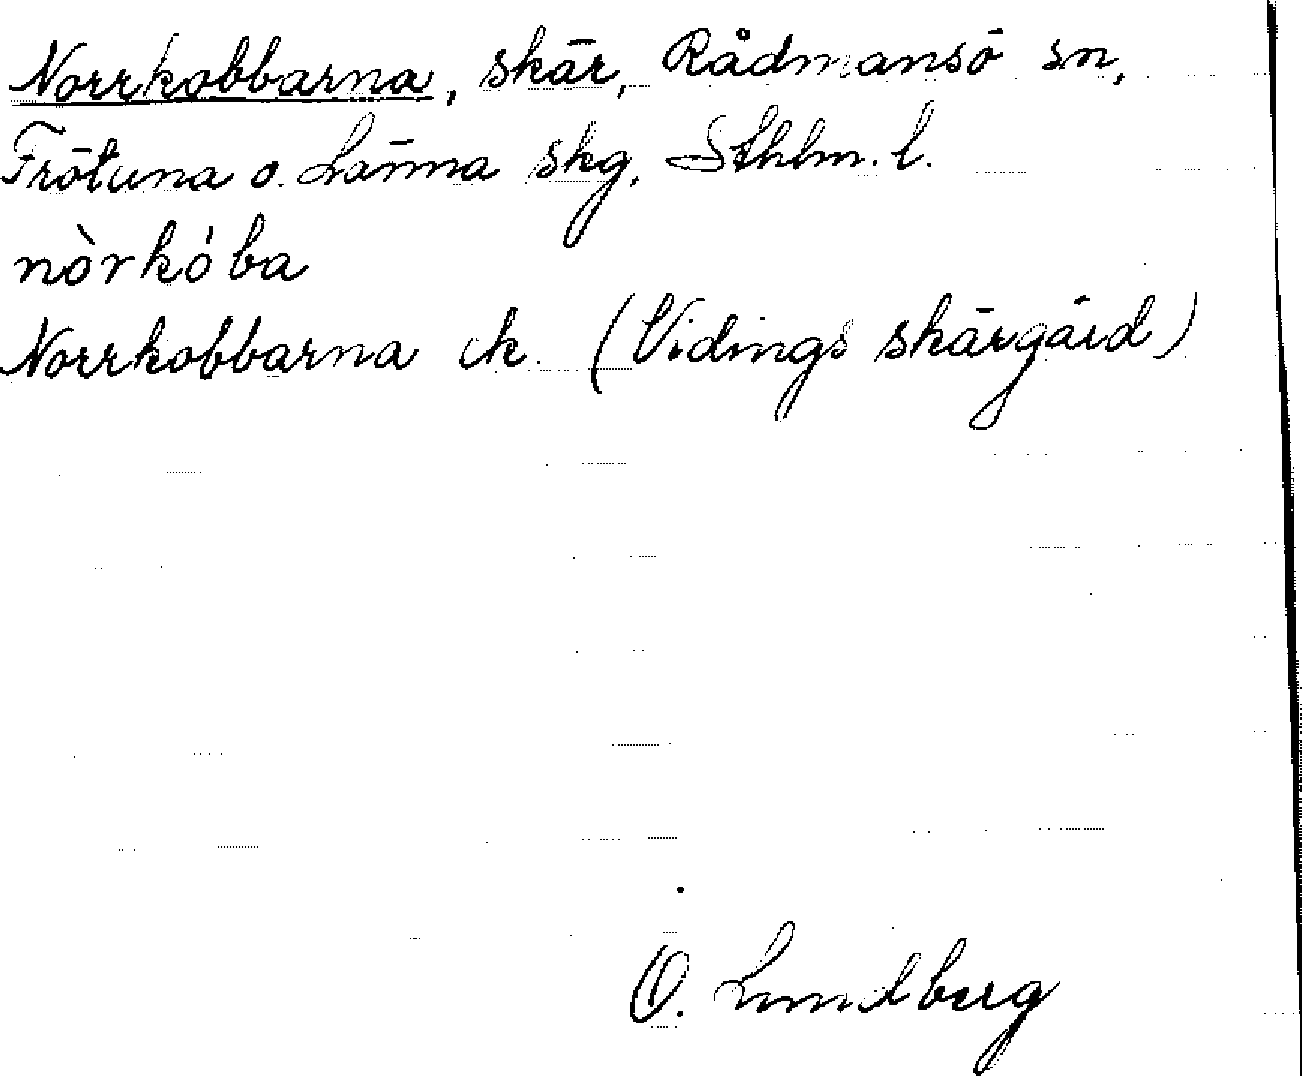 Norrkobbarna, skär, Rådmansö sn,
Frötuna o. Länna skg, Sthlm. l.
nòrkóba
Norrkobbarna ek. (Vidings skärgård)
O. Lundberg